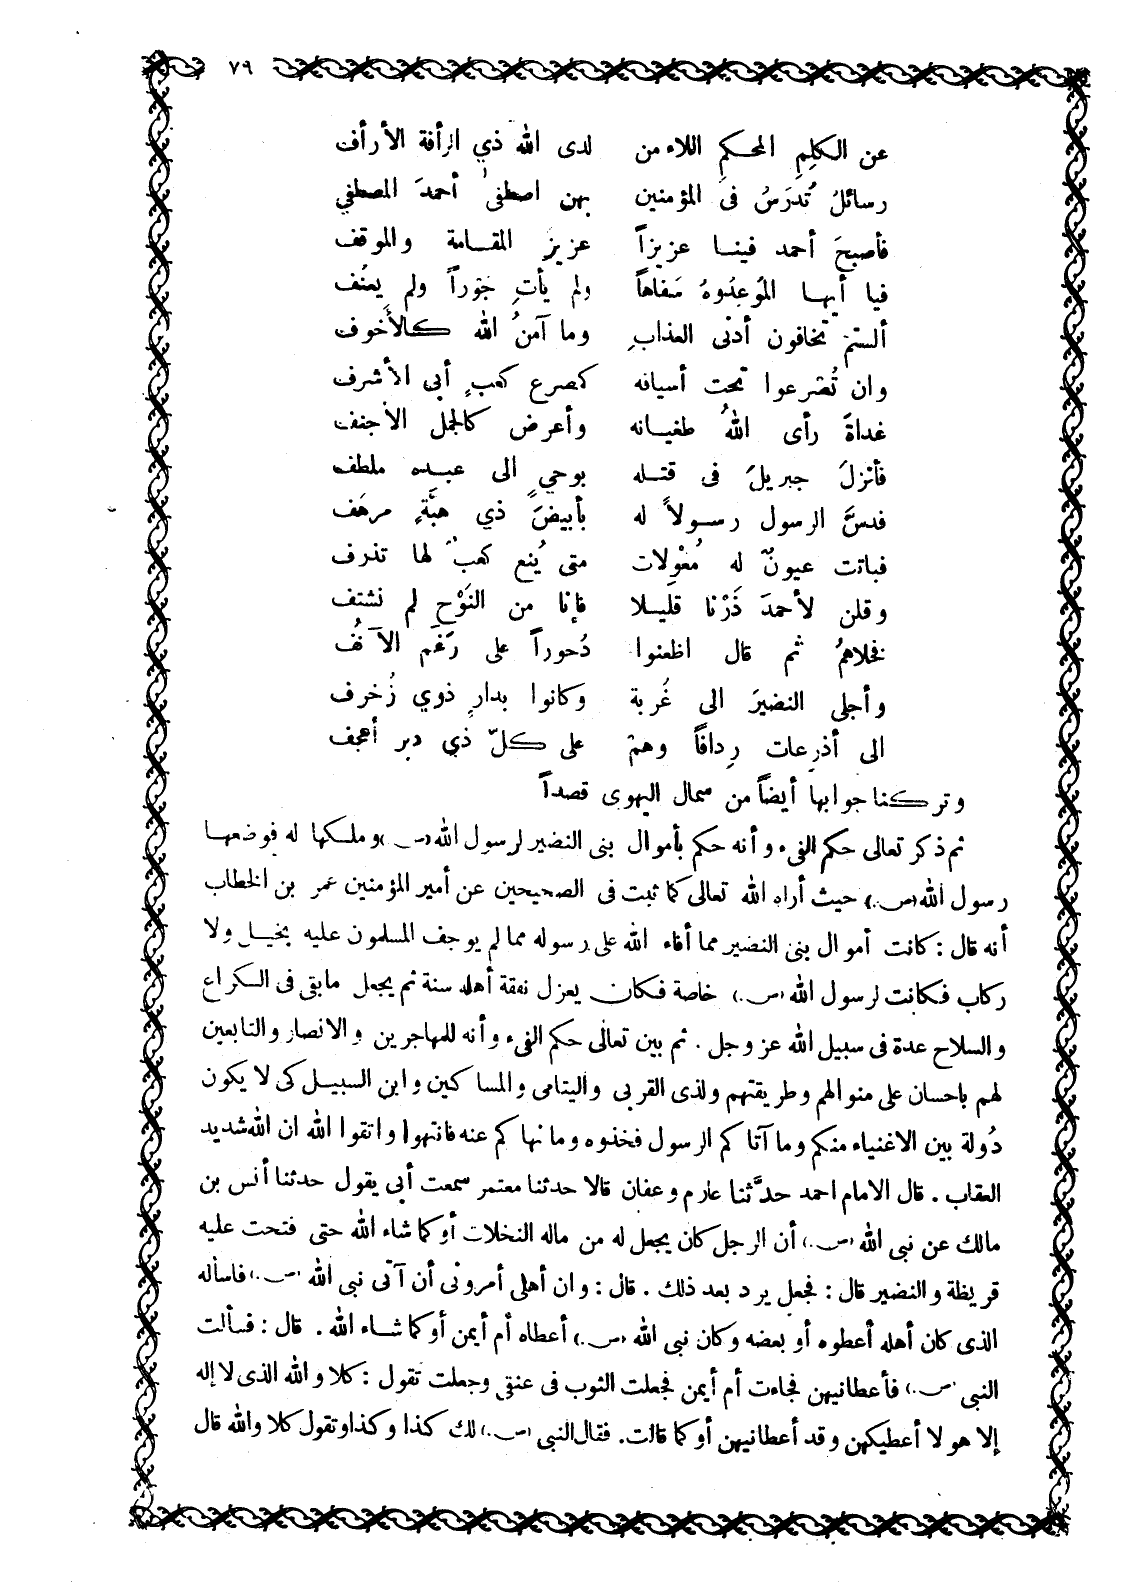 ٧٩
عن الكلِمِ المحكمِ اللاء من لدى الله ذي الرأفة الأرأف
رسائلُ تُدرَسُ فى المؤمنين بهن اصطفى أحمدَ المصطفي
فأصبحَ أحمد فينا عزيزاً عزيز المقامة والموقف
فيا أيها المُوعِدُوهُ سَفاهاً ولم يأتِ جَوراً ولم يعنُف
ألستم تخافون أدنى العذابِ وما آمنُ الله كالأخوف
وان تُصَرعوا تحت أسيافه كمصرع كعبٍ أبي الأشرف
غداةَ رأى اللهُ طغيانه وأعرض كالجمل الأجنف
فأنزلَ جبريلَ فى قتله بوحيٍ الى عبده ملطف
فدسَّ الرسول رسولاً له بأبيضَ ذي هبَّةٍ مرهَف
فباتت عيونٌ له مُعْولات متى يُنع كعبٌ لها تذرف
وقلن لأحمدَ ذَرْنا قليلا فإنا من النَوْح لم نشتف
فخلاهمُ ثم قال اظعنوا دُحوراً على رَغَم الآنُف
وأجلى النضيرَ الى غُربة وكانوا بدارٍ ذوي زُخرف
الى أذرعات رِدافاً وهمْ على كلّ ذي دبر أعجف
وتركنا جوابها أيضاً من سمال اليهوى قصداً
ثم ذكر تعالى حكم الفىء وأنه حكم بأموال بنى النضير لرسول الله (ص.) وملكها له فوضعها
رسول الله (ص.) حيث أراه الله تعالى كما ثبت فى الصحيحين عن أمير المؤمنين عمر بن الخطاب
أنه قال : كانت أموال بنى النضير مما أفاء الله على رسوله مما لم يوجف المسلمون عليه بخيل ولا
ركاب فكانت لرسول الله (ص.) خاصة فكان يعزل نفقة أهله سنة ثم يجعل مابقى فى الكراع
والسلاح عدة فى سبيل الله عز وجل . ثم بين تعالى حكم الفىء وأنه للمهاجرين والانصار والتابعين
لهم باحسان على منوالهم وطريقتهم ولذى القربى واليتامى والمساكين وابن السبيل كى لا يكون
دُولة بين الاغنياء منكم وما آتاكم الرسول فخذوه وما نهاكم عنه فانتهوا واتقوا الله ان الله شديد
العقاب . قال الامام احمد حدَّثنا عارم وعفان قالا حدثنا معتمر سمعت أبي يقول حدثنا أنس بن
مالك عن نبى الله (ص.) أن الرجل كان يجعل له من ماله النخلات أو كما شاء الله حتى فتحت عليه
قريظة والنضير قال : فجعل يرد بعد ذلك . قال : وان أهلى أمرونى أن آتى نبى الله (ص.) فاسأله
الذى كان أهله أعطوه أو بعضه وكان نبى الله (ص.) أعطاه أم أيمن أو كما شاء الله . قال : فسألت
النبى (ص.) فأعطانيهن فجاءت أم أيمن فجعلت الثوب فى عنقى وجعلت تقول : كلا والله الذى لا إله
إلا هو لا أعطيكهن وقد أعطانيهن أو كما قالت . فقال النبى (ص.) لك كذا وكذا وتقول كلا والله قال